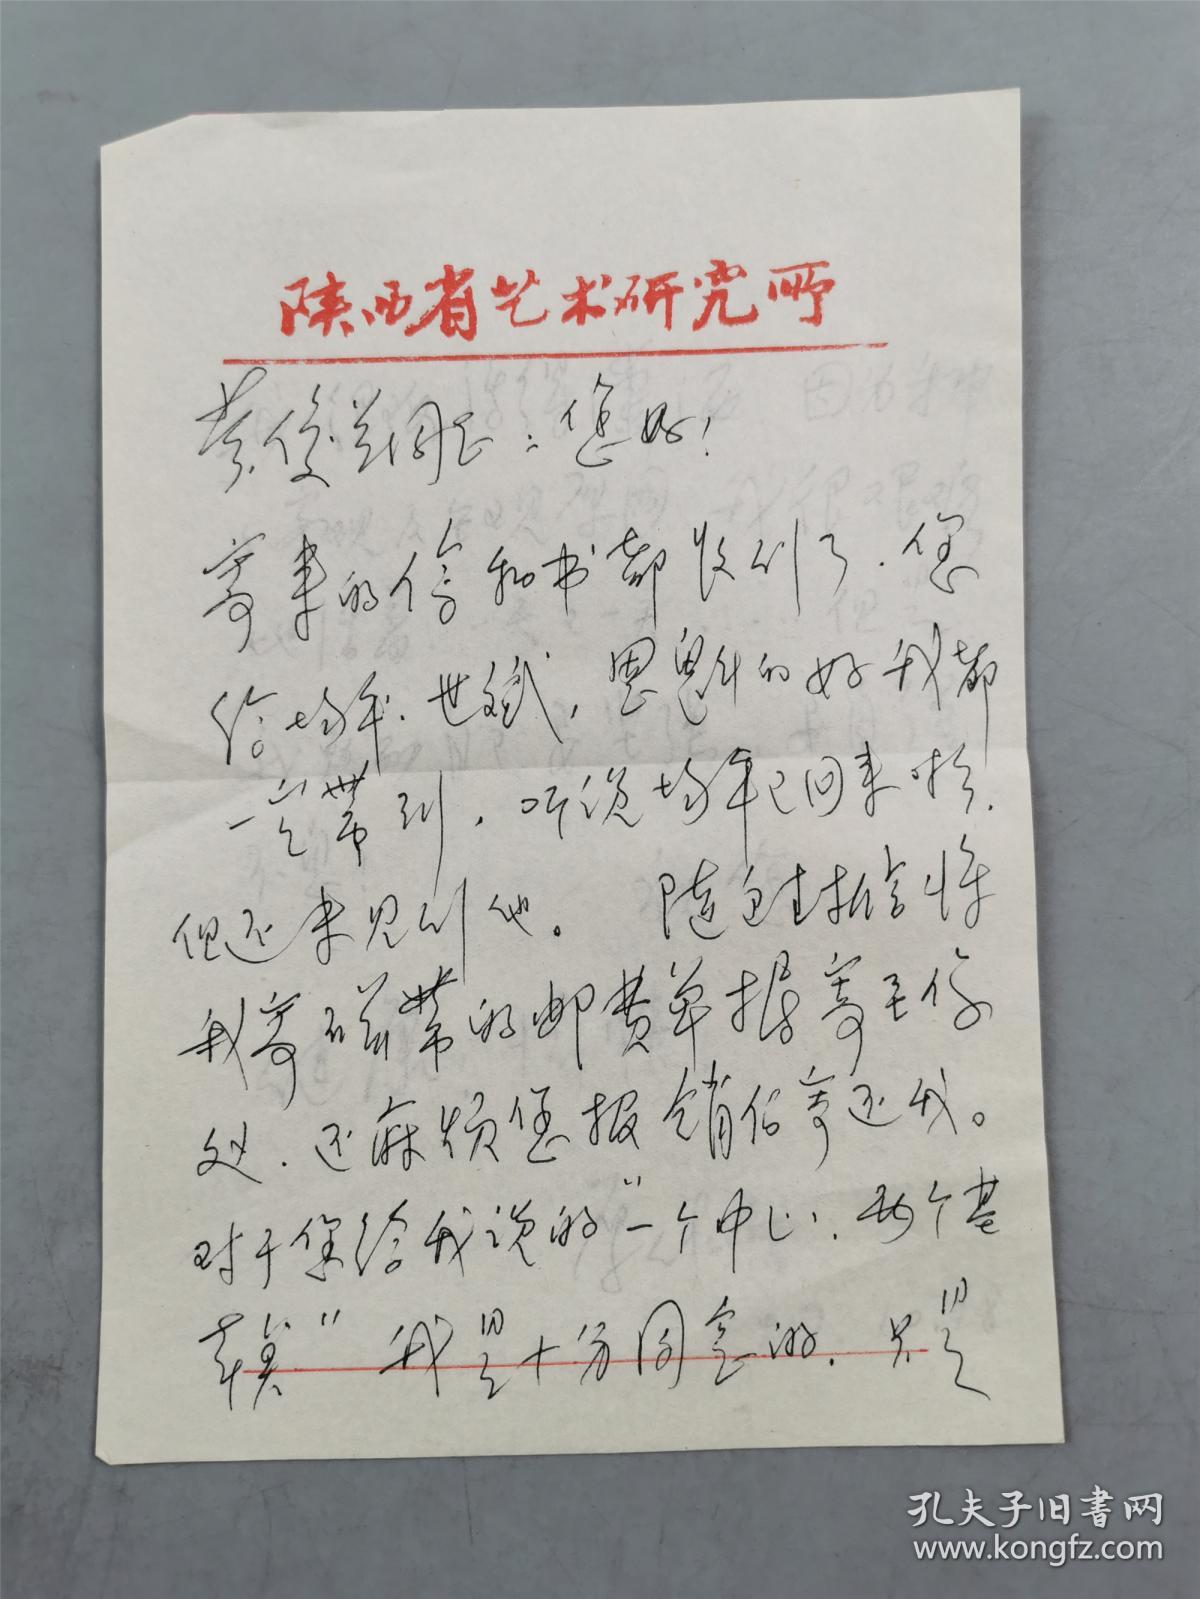 陕西省艺术研究所
蔡俊兰同志：您好！
寄来的信和书都收到了．您
给均年．世斌，恩魁的好我都
一定带到．听说均年已回来啦．
但还未见到他。 随包挂信将
我寄磁带的邮费单据寄至你
处．还麻烦您报销后寄还我。
对于您给我说的"一个中心．两个基
我是十分同意的．只是
孔夫子旧书网
www.kongfz.com